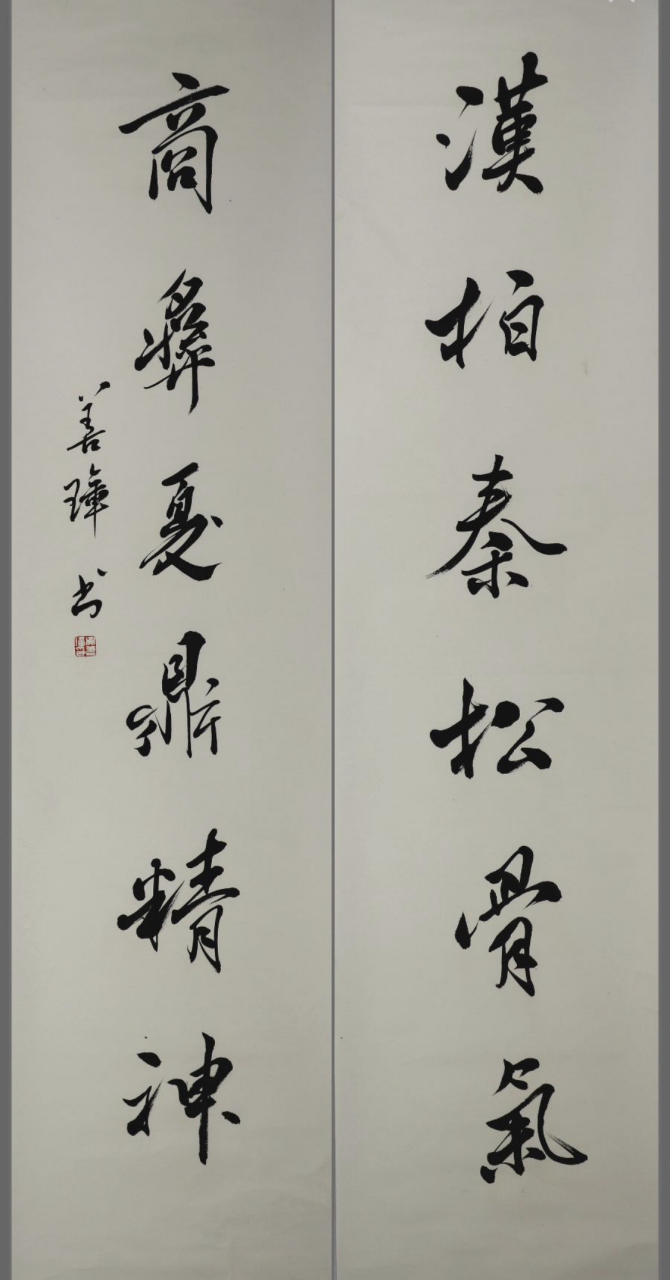 漢柏秦松骨氣
商彝夏鼎精神
善璋书